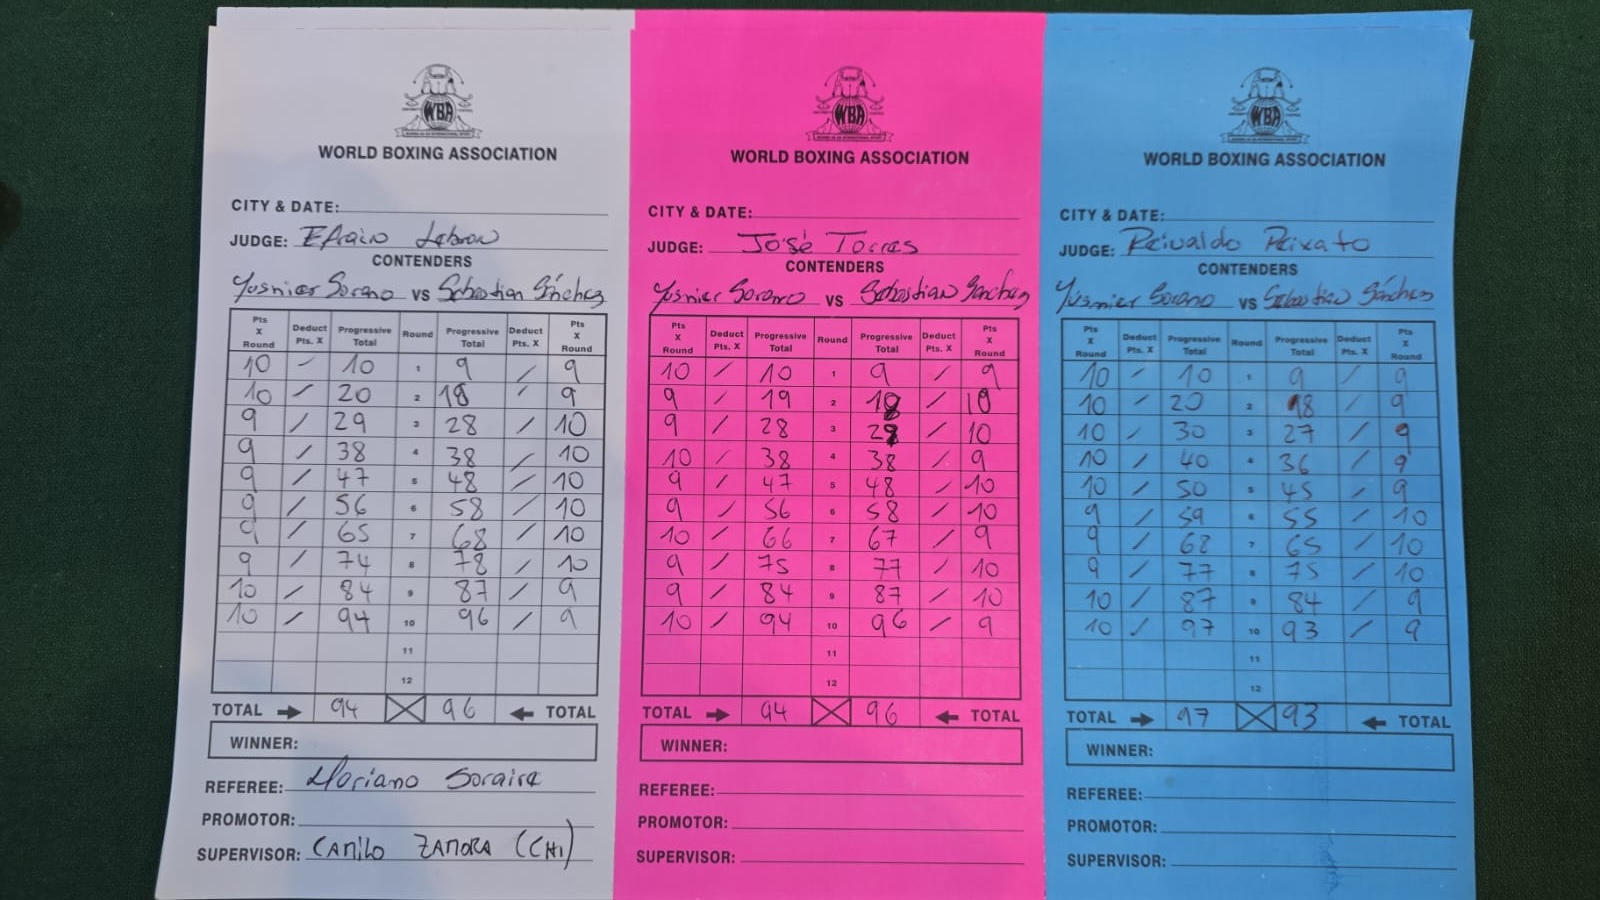 WBA
WORLD BOXING ASSOCIATION
CITY & DATE:
JUDGE: Efrain Lebron
CONTENDERS
Yusnier Sorano VS Sebastian Sánchez
Pts X Round Deduct Pts. X Progressive Total Round Progressive Total Deduct Pts. X Pts X Round
10 - 10 1 9 / 9
10 / 20 2 18 / 9
9 / 29 3 28 / 10
9 / 38 4 38 / 10
9 / 47 5 48 / 10
9 / 56 6 58 / 10
9 / 65 7 68 / 10
9 / 74 8 78 / 10
10 / 84 9 87 / 9
10 / 94 10 96 / 9
11
12
TOTAL → 94 96 ← TOTAL
WINNER:
REFEREE: Mariano Soraire
PROMOTOR:
SUPERVISOR: CAMILO ZAMORA (CHI)
WBA
WORLD BOXING ASSOCIATION
CITY & DATE:
JUDGE: José Torres
CONTENDERS
Yusnier Sorano VS Sebastian Sánchez
Pts X Round Deduct Pts. X Progressive Total Round Progressive Total Deduct Pts. X Pts X Round
10 / 10 1 9 / 9
9 / 19 2 19 / 10
9 / 28 3 29 / 10
10 / 38 4 38 / 9
9 / 47 5 48 / 10
9 / 56 6 58 / 10
10 / 66 7 67 / 9
9 / 75 8 77 / 10
9 / 84 9 87 / 10
10 / 94 10 96 / 9
11
12
TOTAL → 94 96 ← TOTAL
WINNER:
REFEREE:
PROMOTOR:
SUPERVISOR:
WBA
WORLD BOXING ASSOCIATION
CITY & DATE:
JUDGE: Reivaldo Peixato
CONTENDERS
Yusnier Sorano VS Sebastian Sánchez
Pts X Round Deduct Pts. X Progressive Total Round Progressive Total Deduct Pts. X Pts X Round
10 / 10 1 9 / 9
10 / 20 2 18 / 9
10 / 30 3 27 / 9
10 / 40 4 36 / 9
10 / 50 5 45 / 9
9 / 59 6 55 / 10
9 / 68 7 65 / 10
9 / 77 8 75 / 10
10 / 87 9 84 / 9
10 / 97 10 93 / 9
11
12
TOTAL → 97 93 ← TOTAL
WINNER:
REFEREE:
PROMOTOR:
SUPERVISOR: